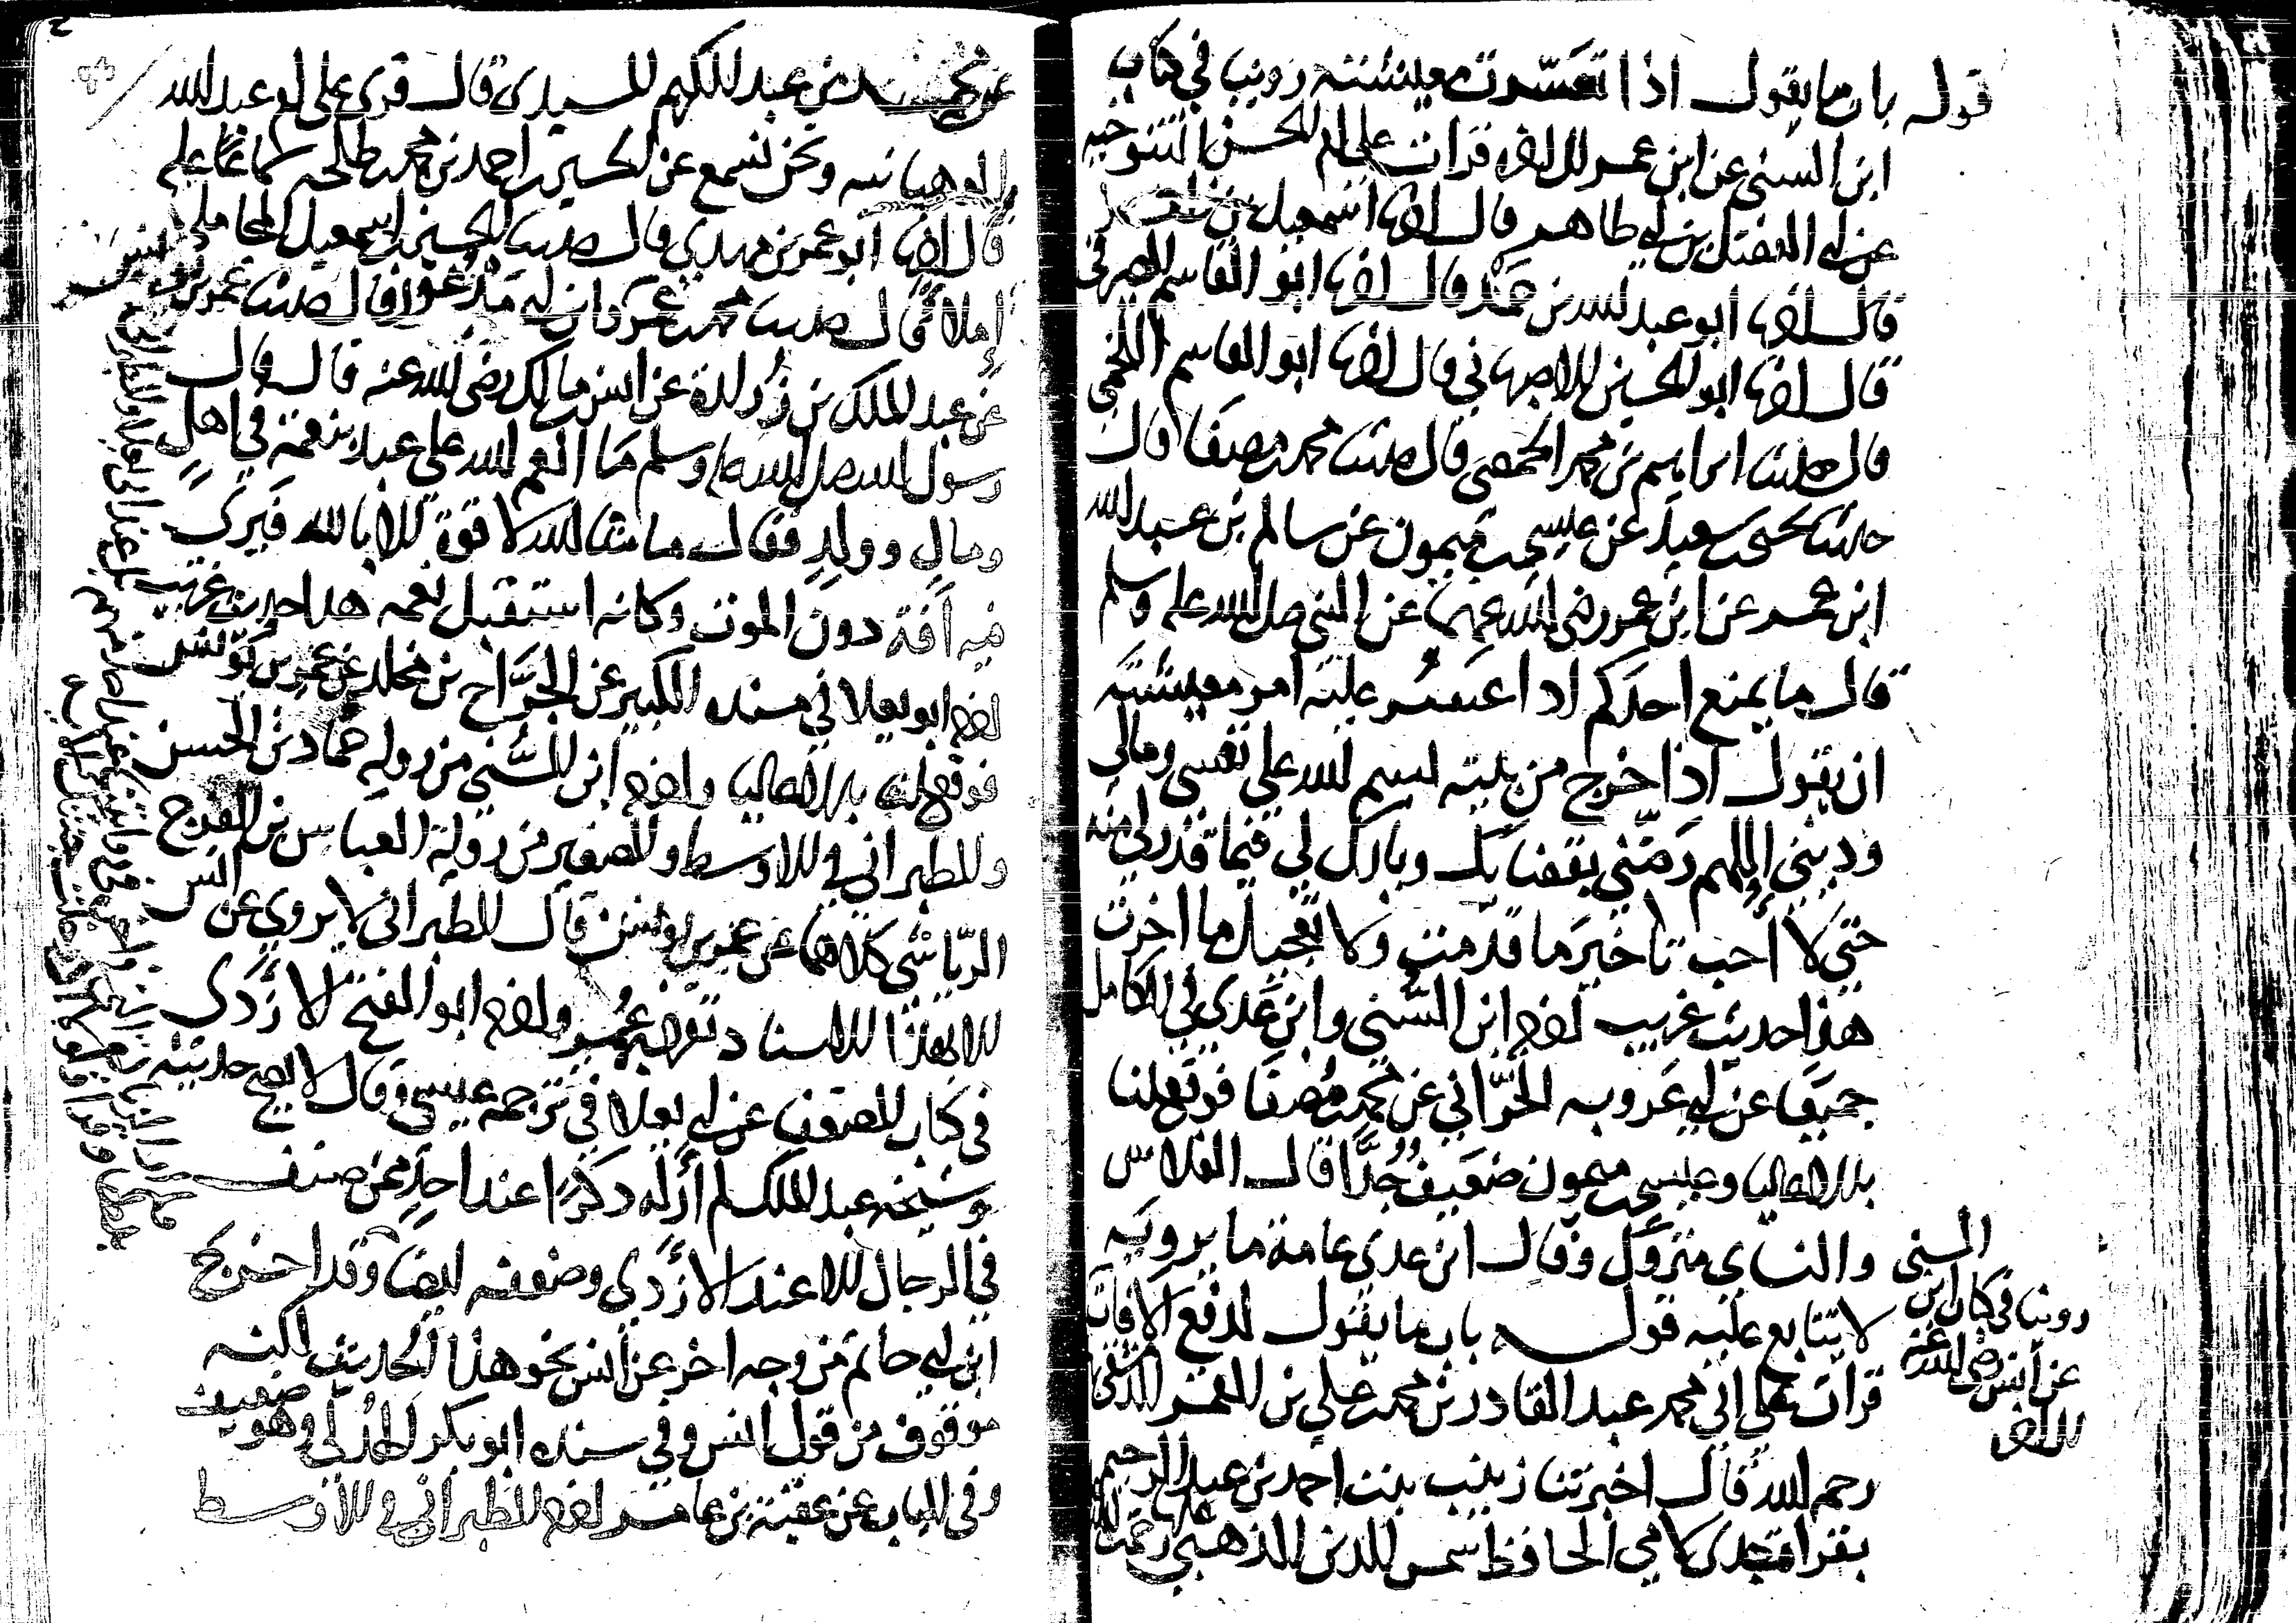 قوله باب ما يقول اذا تعسرت معيشته روينا في كتاب
ابن السني عن ابن عمر الى اخره قرات على ام الحسن التنوخيه
عن ابي الفضل بن ابي طاهر قال انا اسمعيل بن ظفر
قال انا ابو عبد الله بن حمد قال انا ابو القاسم الصيرفي
قال انا ابو الحسين الاصبهاني قال انا ابو القاسم اللخمي
قال حدثنا ابراهيم بن محمد الحمصي قال حدثنا محمد بن مصفا قال
حدثنا يحيى بن سعيد عن عيسى بن ميمون عن سالم بن عبد الله
ابن عمر عن ابن عمر رضي الله عنهما عن النبي صلى الله عليه وسلم
قال ما يمنع احدكم اذا عسر عليه امر معيشته
ان يقول اذا خرج من بيته بسم الله على نفسي ومالي
وديني اللهم رضني بقضائك وبارك لي فيما قدر لي منه
حتى لا احب تاخير ما قدمت ولا تعجيل ما اخرت
هذا حديث غريب اخرجه ابن السني وابن عدي في الكامل
جميعا عن ابي عروبه الحراني عن محمد بن مصفا فوقع لنا
بدلا عاليا وعيسى بن ميمون ضعيف جدا قال الفلاس
والنساي متروك وقال ابن عدي عامة ما يرويه
لا يتابع عليه قوله باب ما يقول لدفع الافات
روينا في كتاب ابن
السني
عن أنس رضي الله عنه
الى اخره
قرات على ابي محمد عبد القادر بن محمد بن علي بن القمر الدمشقي
رحمه الله قال اخبرتنا زينب بنت احمد بن عبد الرحيم
بقراءة جدي لامي الحافظ شمس الدين الذهبي رحمة الله عليه
عن محمد بن عبد الكريم السيدي قال قرئ على ام عبد الله
الوهبانيه ونحن نسمع عن الحسين بن احمد بن محمد بن طلحه سماعا عليه
قال انا ابو عمر بن مهدي قال حدثنا الحسين بن اسمعيل المحاملي
إملاءً قال حدثنا محمد بن عمر بن ابي مذعور قال حدثنا عمر بن يونس
عن عبد الملك بن زرارة عن انس بن مالك رضي الله عنه قال قال
رسول الله صلى الله عليه وسلم ما انعم الله على عبد بنعمة في اهل
ومال وولد فقال ما شا الله لا قوة الا بالله فيرى
فيه آفة دون الموت وكانه استقبل نعمه هذا حديث غريب
اخرجه ابو يعلا في مسنده الكبير عن الجراح بن مخلد عن عمر بن يونس
فوقع لنا بدلا عاليا واخرجه ابن السني من رواية حماد بن الحسن
والطبراني في الاوسط والصغير من رواية العباس بن الفرج
الرياشي كلاهما عن عمر بن يونس قال الطبراني لا يروى عن انس
الا بهذا الاسناد تفرد به عمر واخرجه ابو الفتح الازدي
في كتاب الضعفا عن ابي يعلا في ترجمة عيسى وقال لا يصح حديثه
وشيخه عبد الملك لم أر له ذكرا عند احد ممن صنف
في الرجال الا عند الازدي وضعفه ايضا وقد اخرج
ابن ابي حاتم من وجه اخر عن أنس نحو هذا الحديث لكنه
موقوف من قول انس وفي سنده ابو بكر الهذلي وهو ضعيف
وفي الباب عن عقبة بن عامر اخرجه الطبراني في الاوسط